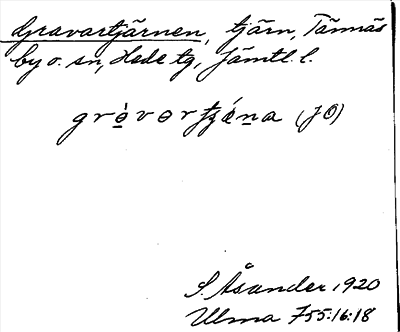 Gravartjärnen, tjärn, Tännäs
by o. sn, Hede tg, Jämtl. l.
grè̱vɵrtjǽṉa (JO)
S. Åsander 1920
Ulma 755:16:18